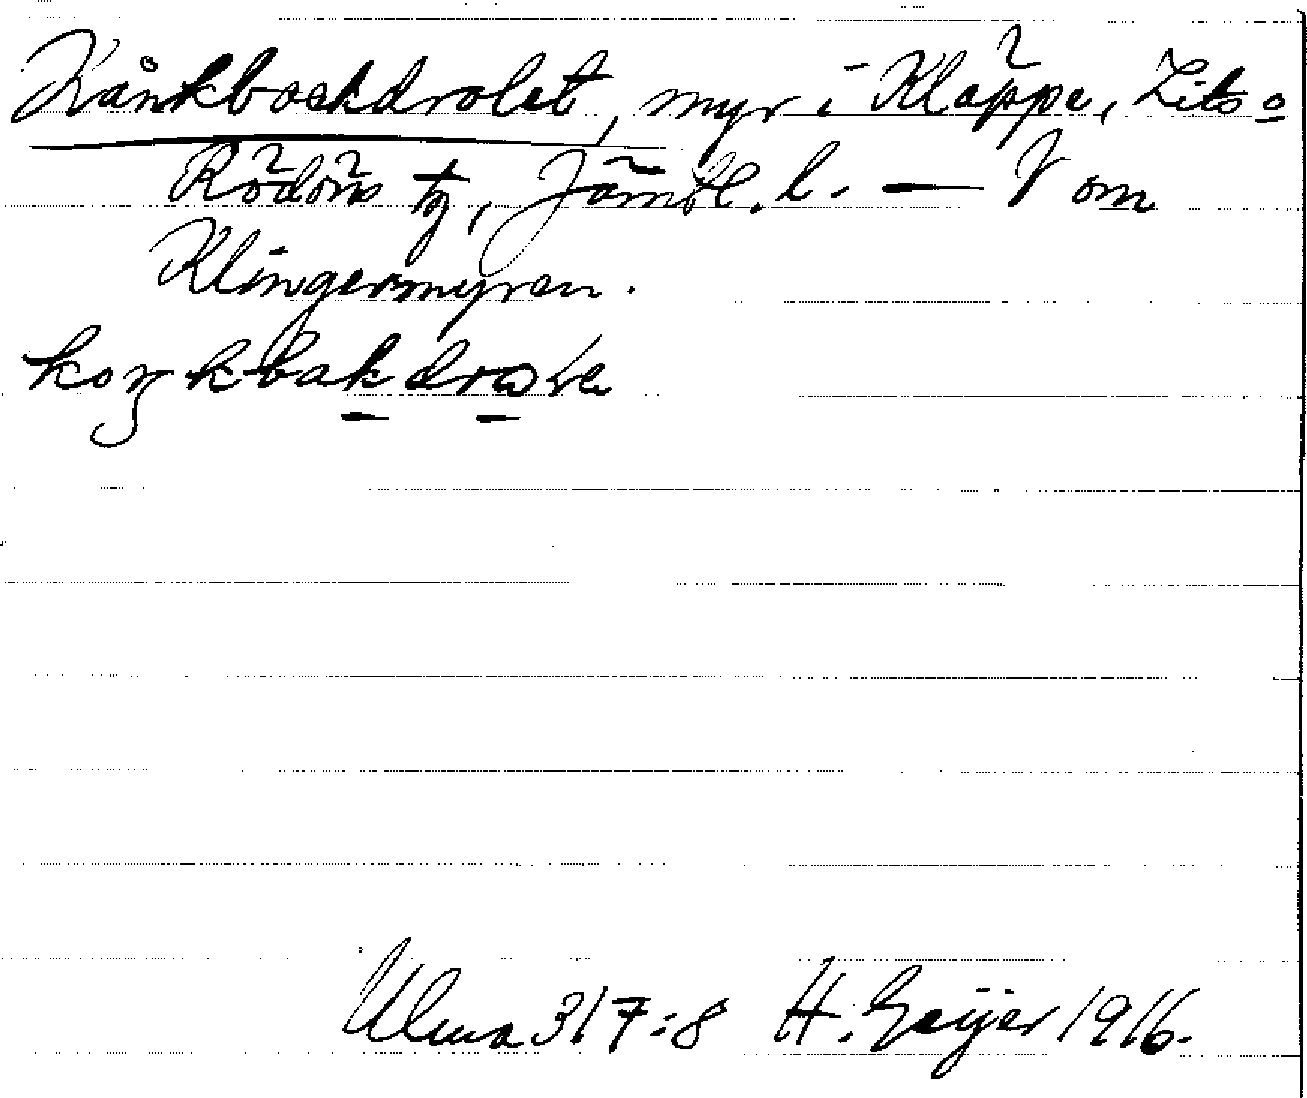 Kånkbackdrolet, myr i Kläppe, Lits o
Rödöns tg, Jämtl. l. — V om
Klingermyren.
koŋkbakdrω
Ulma 317:8 H. Geijer 1916.